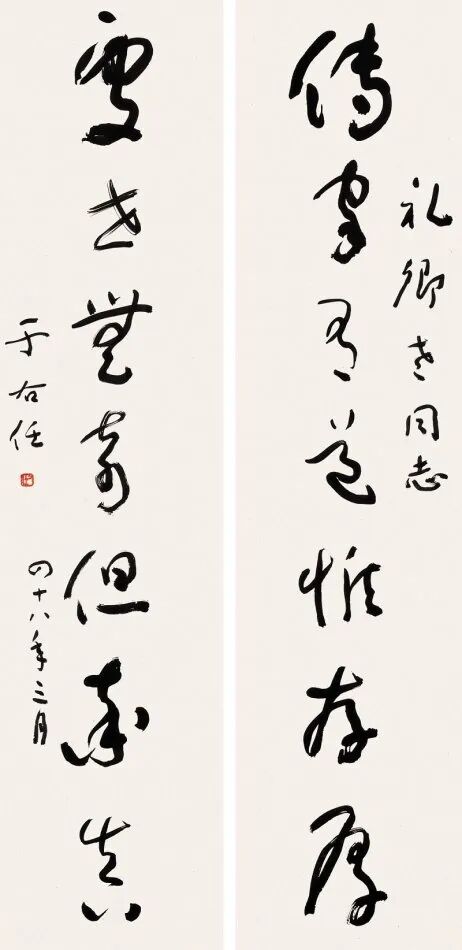 礼卿老同志
傳家有道惟存厚
處世無奇但率真
四十八年三月
于右任